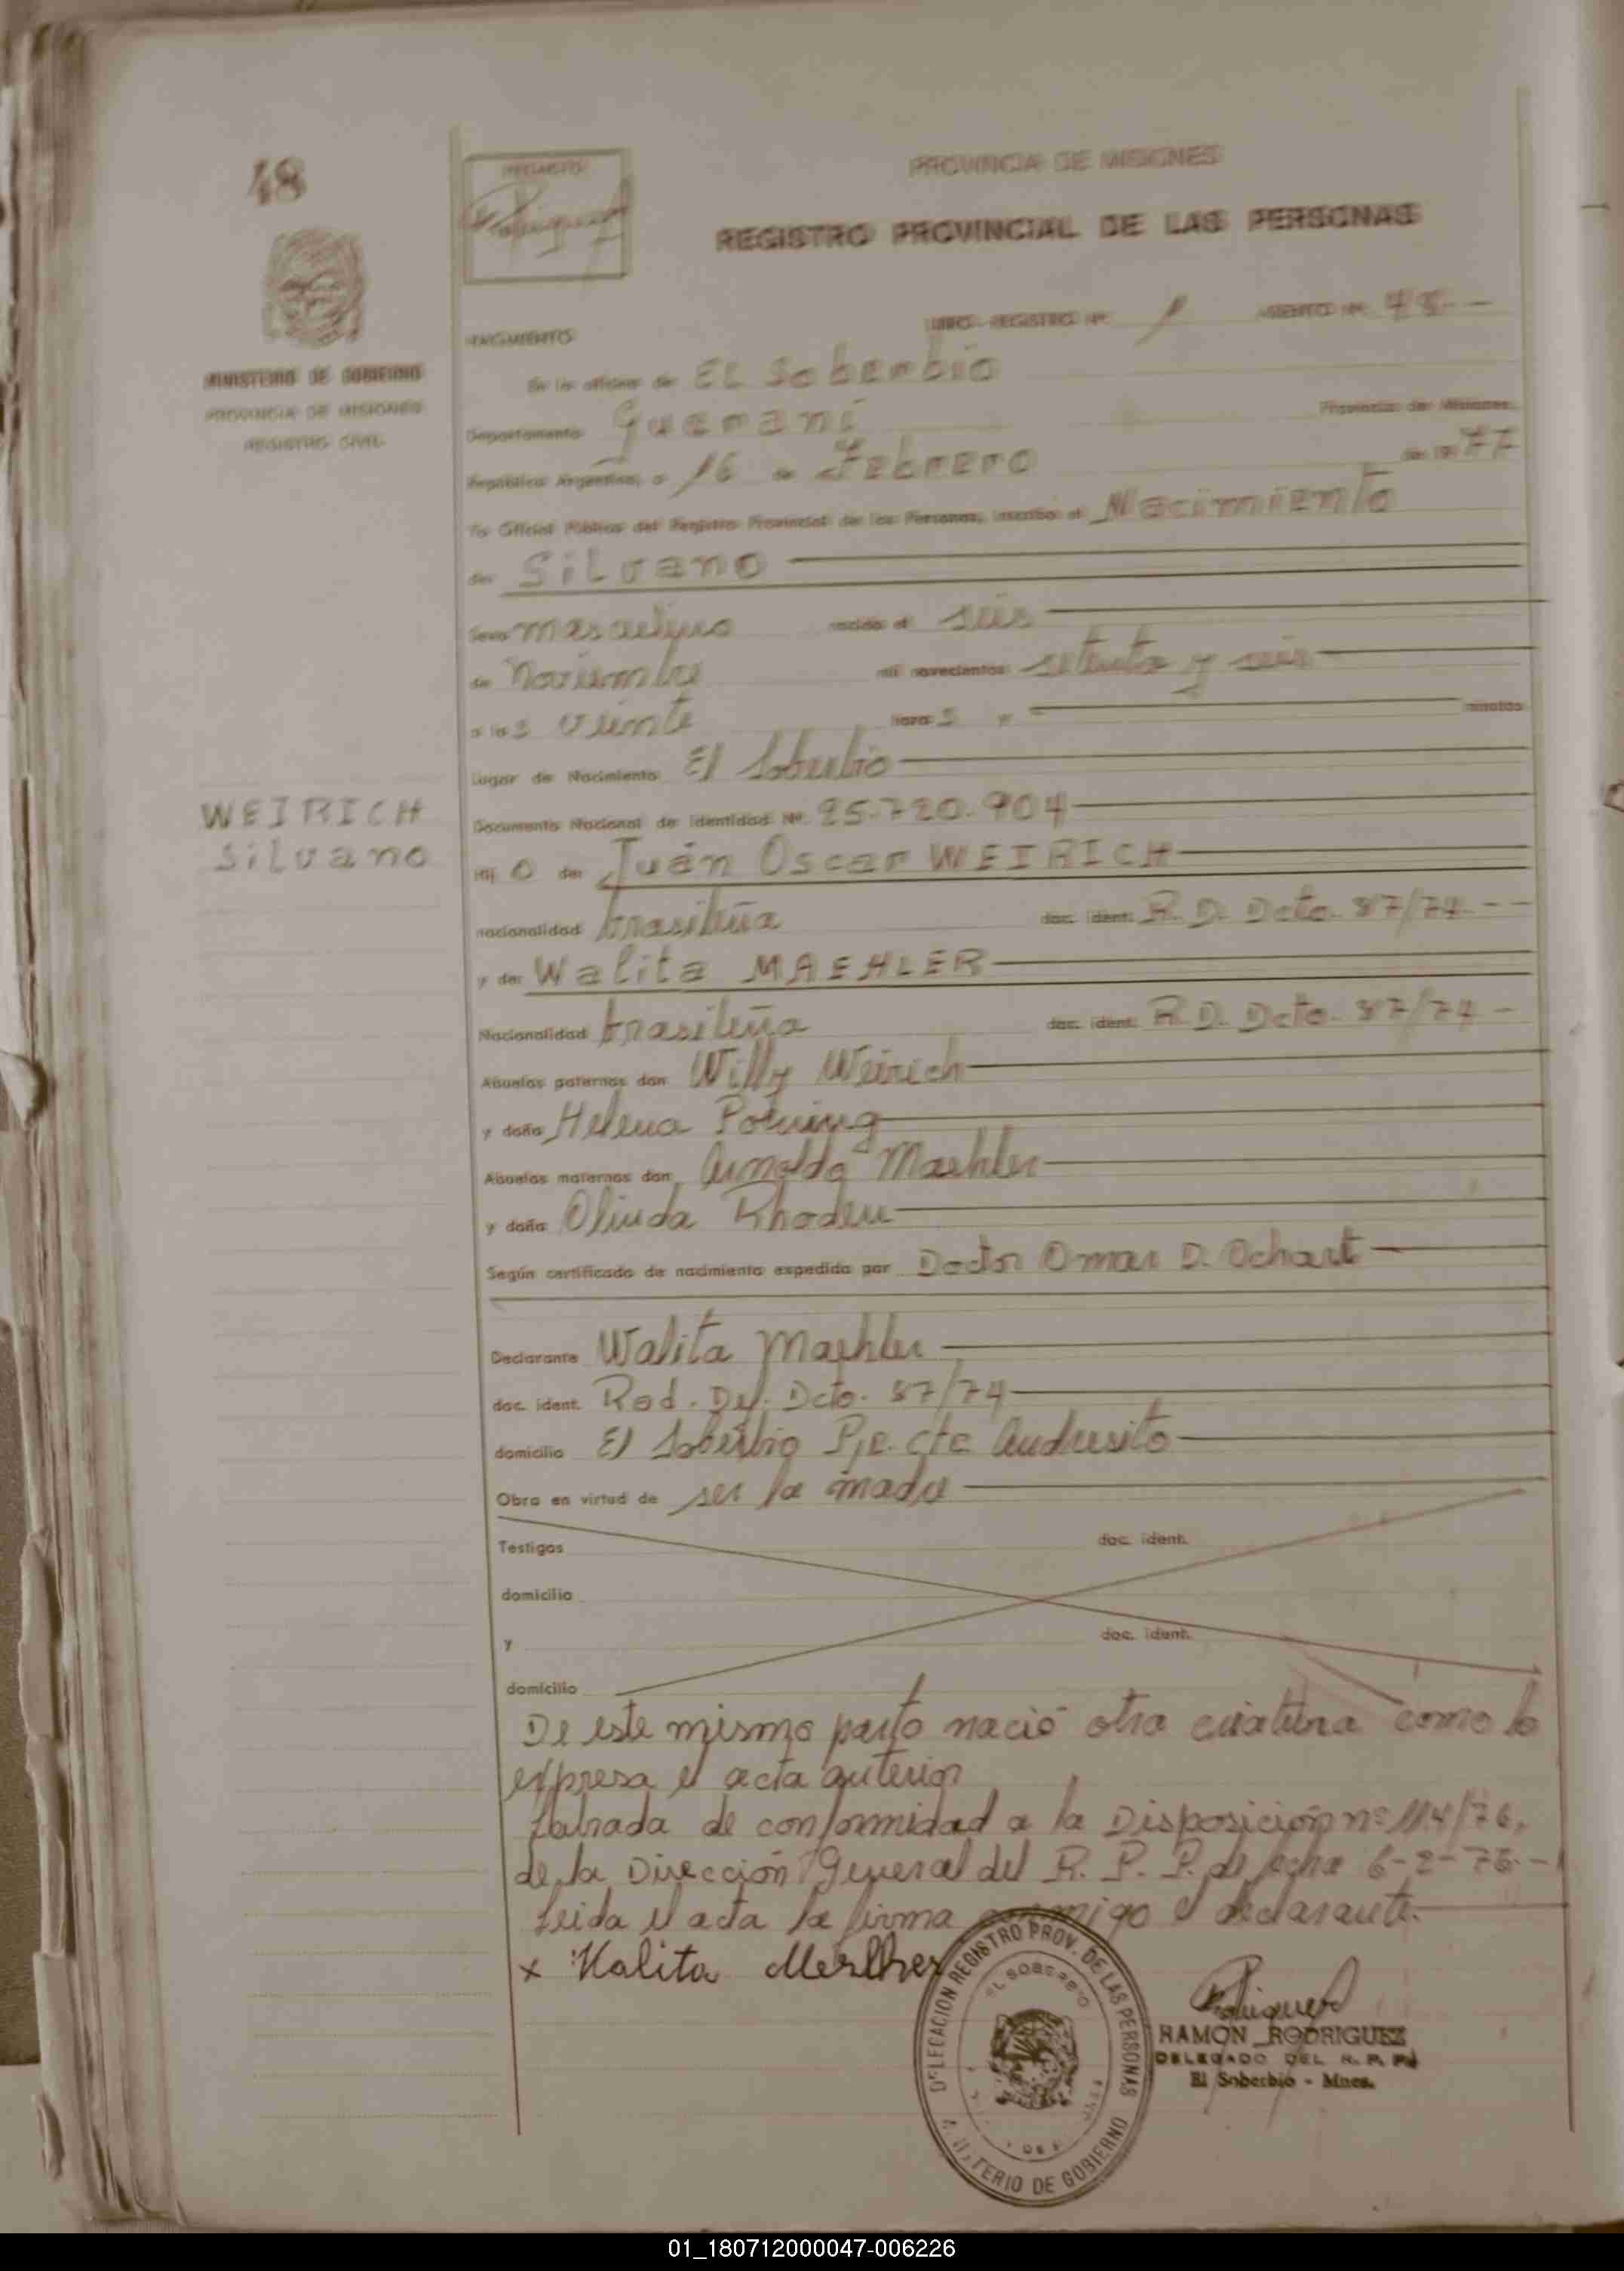 48
PROVINCIA DE MISIONES
REGISTRO PROVINCIAL DE LAS PERSONAS
NACIMIENTO
LIBRO - REGISTRO Nº 1 ASIENTO Nº 48 --
MINISTERIO DE GOBIERNO
PROVINCIA DE MISIONES
REGISTRO CIVIL
En la oficina de El Soberbio
Departamento Guaraní Provincia de Misiones
República Argentina, a 16 de Febrero de 19 77
Yo Oficial Público del Registro Provincial de las Personas, inscribo el Nacimiento
de: Silvano
Sexo masculino nacido el seis
de noviembre mil novecientos setenta y seis
a las veinte horas y minutos
Lugar de Nacimiento El Soberbio
WEIRICH
Silvano
Documento Nacional de Identidad Nº 25.720.904
Hijo de: Juán Oscar WEIRICH
nacionalidad brasileña doc. ident. R. D. Dcto. 87/74 --
y de: Walita MAEHLER
Nacionalidad brasileña doc. ident. R. D. Dcto. 87/74 -
Abuelos paternos don Willy Weirich
y doña Helena
Abuelos maternos don Arnoldo Maehler
y doña Olinda Rhoden
Según certificado de nacimiento expedido por Doctor Omar D. Ochart
Declarante Walita Maehler
doc. ident. Rad. Def. Dcto. 87/74
domicilio El Soberbio Pje. Cte Andresito
Obra en virtud de ser la madre
Testigos doc. ident.
domicilio
y doc. ident.
domicilio
De este mismo parto nació otra criatura como lo
expresa el acta anterior
Labrada de conformidad a la Disposición nº 114/76,
de la Dirección General del R. P. P. de fecha 6-2-76.-
Leida el acta la firma conmigo el declarante.
x Walita
DELEGACION REGISTRO PROV. DE LAS PERSONAS
EL SOBERBIO
MINISTERIO DE GOBIERNO
RAMON RODRIGUEZ
DELEGADO DEL R. P. P.
El Soberbio - Mnes.
01_180712000047-006226